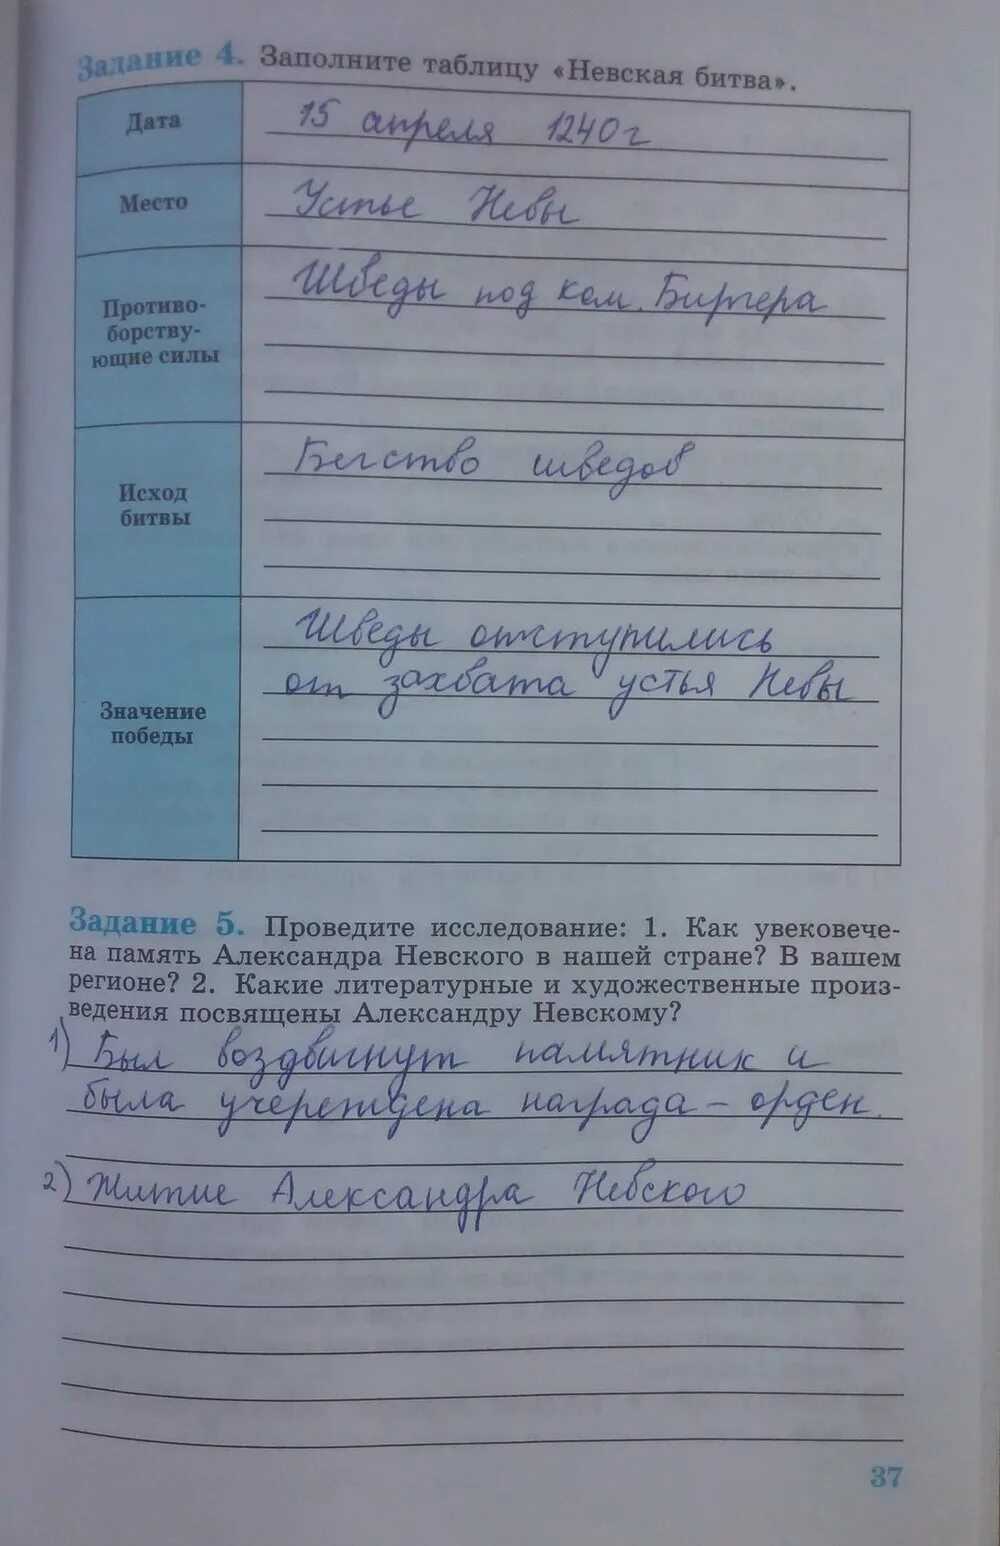 Задание 4. Заполните таблицу «Невская битва».
Дата
15 апреля 1240 г
Место
Устье Невы
Противо-
борству-
ющие силы
Шведы под ком. Биргера
Исход
битвы
Бегство шведов
Значение
победы
Шведы отступились
от захвата устья Невы
Задание 5. Проведите исследование: 1. Как увековече-
на память Александра Невского в нашей стране? В вашем
регионе? 2. Какие литературные и художественные произ-
ведения посвящены Александру Невскому?
1) Был воздвигнут памятник и
была учереждена награда – орден.
2) Житие Александра Невского
37